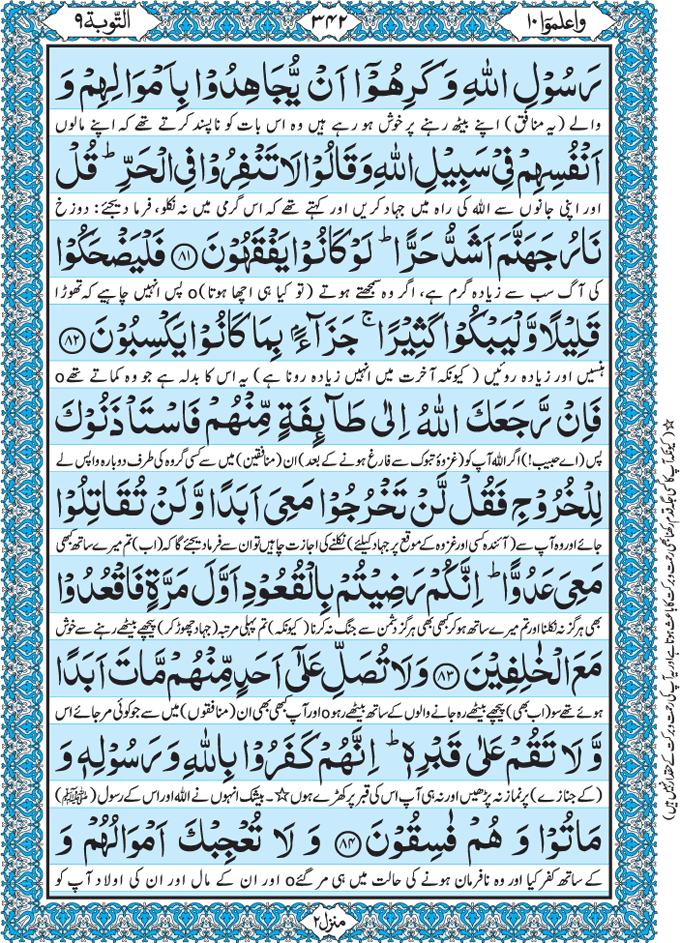 واعلموا ۱۰
۳۴۲
التوبة ۹
رَسُوۡلِ اللّٰهِ وَ كَرِهُوۡۤا اَنۡ يُّجَاهِدُوۡا بِاَمۡوَالِهِمۡ وَ
والے (یہ منافق) اپنے بیٹھ رہنے پر خوش ہو رہے ہیں وہ اس بات کو ناپسند کرتے تھے کہ اپنے مالوں
اَنۡفُسِهِمۡ فِىۡ سَبِيۡلِ اللّٰهِ وَقَالُوۡا لَا تَنۡفِرُوۡا فِى الۡحَـرِّؕ قُلۡ
اور اپنی جانوں سے اللہ کی راہ میں جہاد کریں اور کہتے تھے کہ اس گرمی میں نہ نکلو، فرما دیجئے: دوزخ
نَارُ جَهَنَّمَ اَشَدُّ حَرًّاؕ لَوۡ كَانُوۡا يَفۡقَهُوۡنَ ﴿۸۱﴾ فَلۡيَـضۡحَكُوۡا
کی آگ سب سے زیادہ گرم ہے، اگر وہ سمجھتے ہوتے (تو کیا ہی اچھا ہوتا)o پس انہیں چاہیے کہ تھوڑا
قَلِيۡلًا وَّلۡيَبۡكُوۡا كَثِيۡرًاۚ جَزَآءًۢ بِمَا كَانُوۡا يَكۡسِبُوۡنَ ﴿۸۲﴾
ہنسیں اور زیادہ روئیں (کیونکہ آخرت میں انہیں زیادہ رونا ہے) یہ اس کا بدلہ ہے جو وہ کماتے تھےo
فَاِنۡ رَّجَعَكَ اللّٰهُ اِلٰى طَآٮِٕفَةٍ مِّنۡهُمۡ فَاسۡتَاۡذَنُوۡكَ
پس (اے حبیب!) اگر اللہ آپ کو (غزوۂ تبوک سے فارغ ہونے کے بعد) ان (منافقین) میں سے کسی گروہ کی طرف دوبارہ واپس لے
لِلۡخُرُوۡجِ فَقُلْ لَّنۡ تَخۡرُجُوۡا مَعِىَ اَبَدًا وَّلَنۡ تُقَاتِلُوۡا
جائے اور وہ آپ سے (آئندہ کسی اور غزوہ کے موقع پر جہاد کیلئے) نکلنے کی اجازت چاہیں تو ان سے فرما دیجئے گا کہ (اب) تم میرے ساتھ کبھی
مَعِىَ عَدُوًّاؕ اِنَّكُمۡ رَضِيۡتُمۡ بِالۡقُعُوۡدِ اَوَّلَ مَرَّةٍ فَاقۡعُدُوۡا
بھی ہرگز نہ نکلنا اور تم میرے ساتھ ہو کر کبھی بھی ہرگز دشمن سے جنگ نہ کرنا (کیونکہ) تم پہلی مرتبہ (جہاد چھوڑ کر) پیچھے بیٹھے رہنے سے خوش
مَعَ الۡخٰلِفِيۡنَ ﴿۸۳﴾ وَلَا تُصَلِّ عَلٰٓى اَحَدٍ مِّنۡهُمۡ مَّاتَ اَبَدًا
ہوئے تھے سو (اب بھی) پیچھے بیٹھے رہ جانے والوں کے ساتھ بیٹھے رہوo اور آپ کبھی بھی ان (منافقوں) میں سے جو کوئی مر جائے اس
وَّلَا تَقُمۡ عَلٰى قَبۡرِهٖؕ اِنَّهُمۡ كَفَرُوۡا بِاللّٰهِ وَرَسُوۡلِهٖ وَ
(کے جنازے) پر نماز نہ پڑھیں اور نہ ہی آپ اس کی قبر پر کھڑے ہوں☆۔ بیشک انہوں نے اللہ اور اس کے رسول (ﷺ)
مَاتُوۡا وَ هُمۡ فٰسِقُوۡنَ ﴿۸۴﴾ وَ لَا تُعۡجِبۡكَ اَمۡوَالُهُمۡ وَ
کے ساتھ کفر کیا اور وہ نافرمان ہونے کی حالت میں ہی مر گئےo اور ان کے مال اور ان کی اولاد آپ کو
منزل ۲